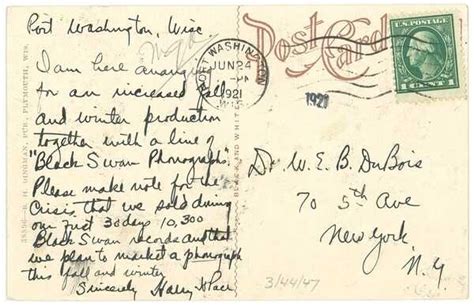 Port Washington, Wisc
I am here arranging
for an increased fall
and winter production
together with a line of
"Black Swan Phonograph".
Please make note for the
Crisis that we sold during
our first 30 days 10,300
Black Swan records and that
we plan to market a phonograph
this fall and winter.
Sincerely Harry H Pace
Post Card
PORT WASHINGTON
JUN 24
PM
1921
WIS.
1921
U.S. POSTAGE
1 CENT 1
Dr W. E. B. DuBois
70 5th Ave
New York
N. Y.
3/44/47
PUB. PLYMOUTH, WIS.